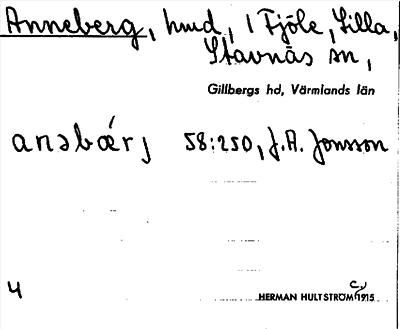 Anneberg, hmd, 1 Fjöle, Lilla,
Stavnäs sn,
Gillbergs hd, Värmlands län
anəbǽrj 58:250, J.A. Jonsson
4
HERMAN HULTSTRÖM 1915